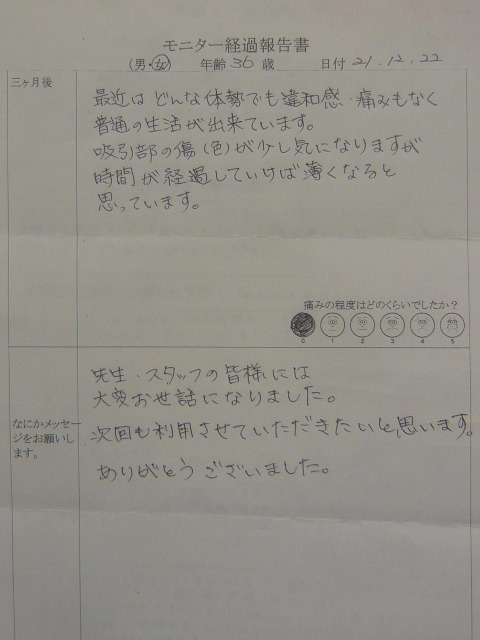 モニター経過報告書
(男・女) 年齢 36 歳 日付 21.12.22
三ヶ月後
最近は どんな体勢でも違和感・痛みもなく
普通の生活が出来ています。
吸引部の傷(色)が少し気になりますが
時間が経過していけば薄くなると
思っています。
痛みの程度はどのくらいでしたか?
0 1 2 3 4 5
なにかメッセー
ジをお願いし
ます。
先生・スタッフの皆様には
大変お世話になりました。
次回も利用させていただきたいと思います。
ありがとうございました。